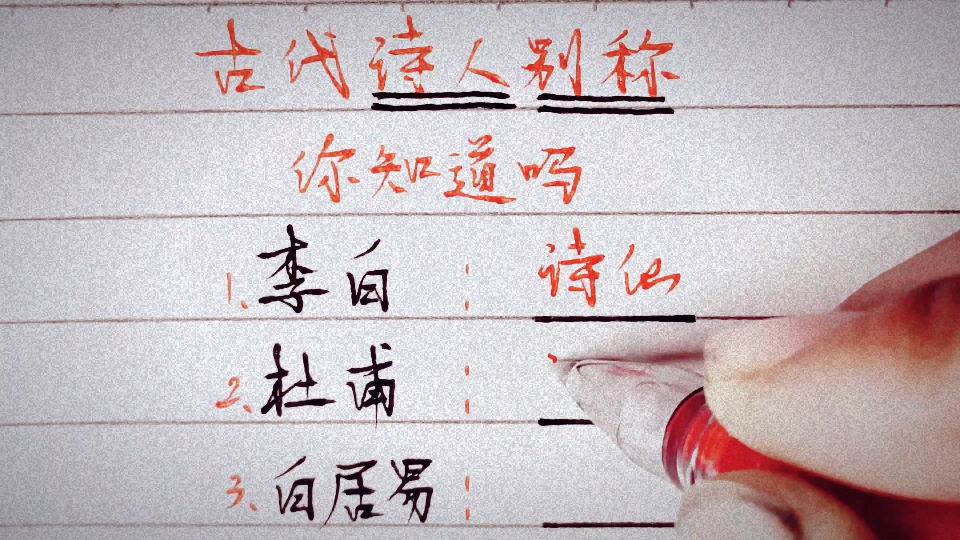 古代诗人别称
你知道吗
1、李白 诗仙
2、杜甫
3、白居易